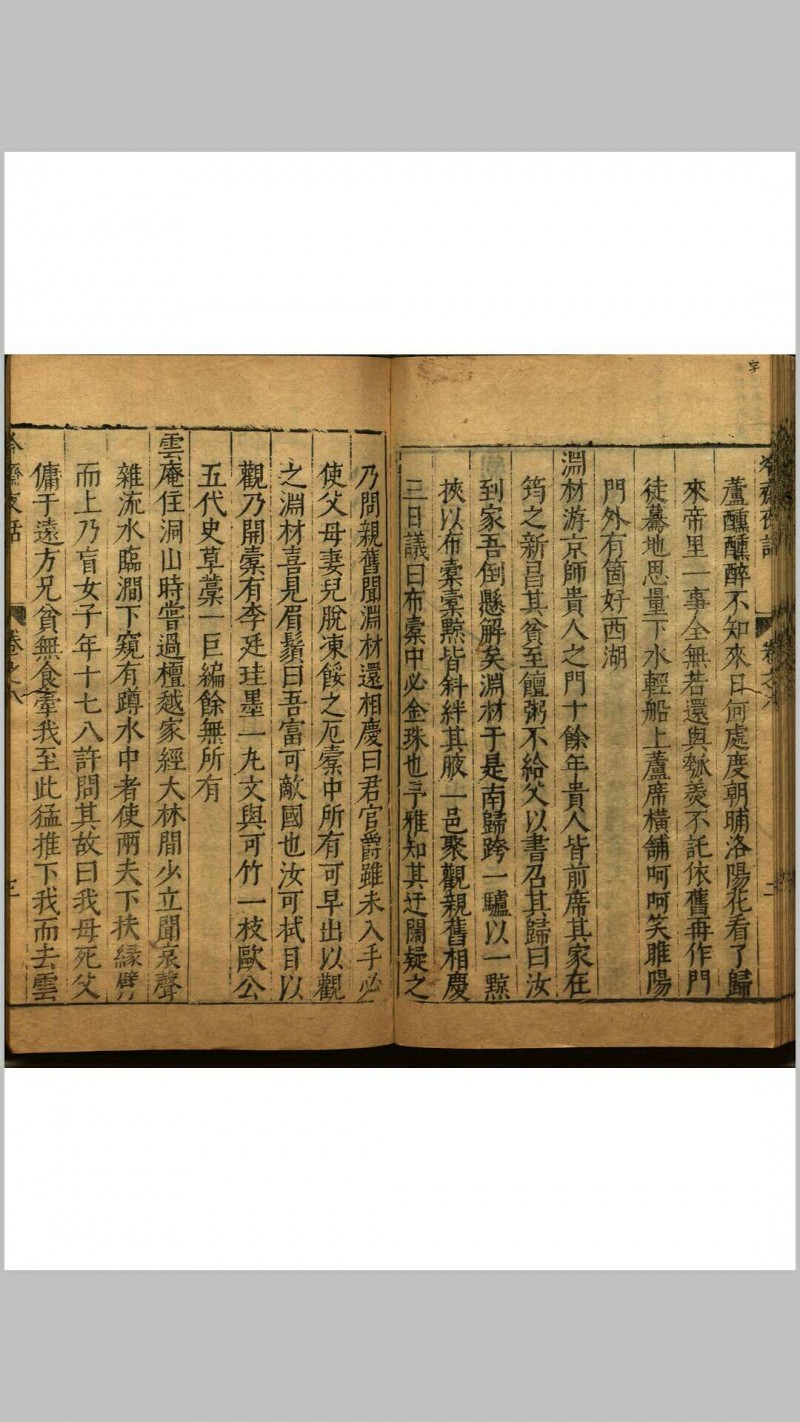 冷齋夜話 卷之八 二
蘆醺醺醉不知來日何處度朝晡洛陽花看了歸
來帝里一事全無若還與匏羹不託依舊再作門
徒驀地思量下水輕船上蘆席橫舖呵呵笑睢陽
門外有箇好西湖
淵材游京師貴人之門十餘年貴人皆前席其家在
筠之新昌其貧至饘粥不給父以書召其歸曰汝
到家吾倒懸解矣淵材于是南歸跨一驢以一黥
挾以布橐橐黥皆斜絆其腋一邑聚觀親舊相慶
三日議曰布橐中必金珠也予雅知其迂闊疑之
乃問親舊聞淵材還相慶曰君官爵雖未入手必
使父母妻兒脫凍餒之厄橐中所有可早出以觀
之淵材喜見眉鬚曰吾富可敵國也汝可拭目以
觀乃開橐有李廷珪墨一丸文與可竹一枝歐公
五代史草藁一巨編餘無所有
雲庵住洞山時嘗過檀越家經大林間少立聞哀聲
雜流水臨澗下窺有蹲水中者使兩夫下扶緣劈
而上乃盲女子年十七八許問其故曰我母死父
傭于遠方兄貧無食牽我至此猛推下我而去雲
冷齋夜話 卷之八 三
字